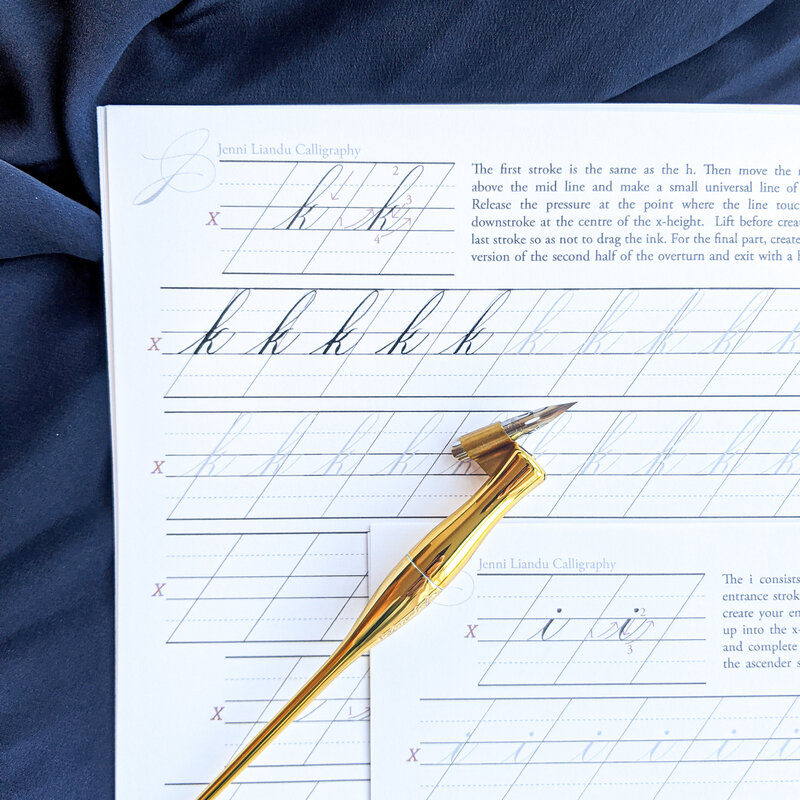 Jenni Liandu Calligraphy
The first stroke is the same as the h. Then move the
above the mid line and make a small universal line of
Release the pressure at the point where the line
downstroke at the centre of the x-height. Lift before
last stroke so as not to drag the ink. For the final part, create
version of the second half of the overturn and exit with a
2
k k 3
X 1
4
X k k k k k k k k k k
X k k k k k k k k
X
Jenni Liandu Calligraphy
The i consists
entrance
create your
up into the
and complete
the ascender
X i i 2
1
3
X 1
X i i i i i i